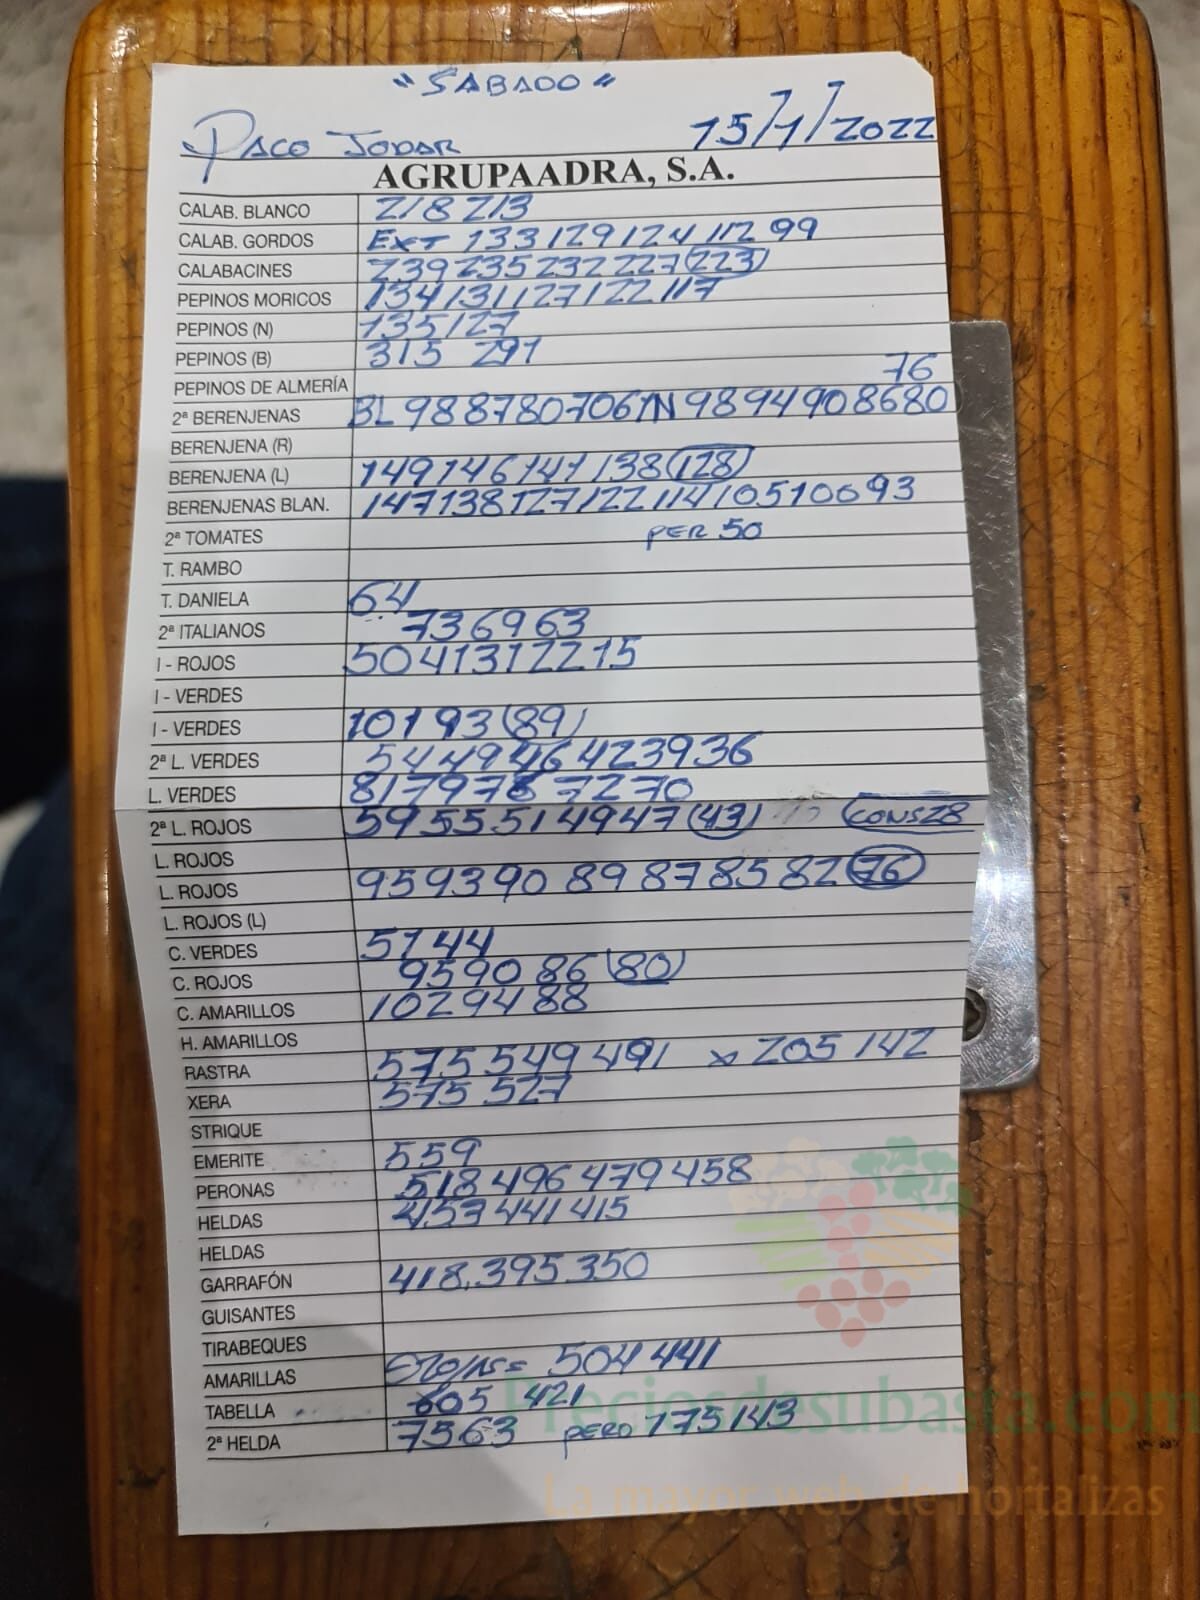 "SABADO"
PACO JODAR 15/1/2022
AGRUPAADRA, S.A.
CALAB. BLANCO 218 213
CALAB. GORDOS EXT 133 129 124 112 99
CALABACINES 239 235 232 227 (223)
PEPINOS MORICOS 134 131 127 122 117
PEPINOS (N) 135 127
PEPINOS (B) 315 291
PEPINOS DE ALMERÍA 76
2ª BERENJENAS BL 98 87 80 70 61 N 98 94 90 86 80
BERENJENA (R)
BERENJENA (L) 149 146 141 138 (128)
BERENJENAS BLAN. 147 138 127 122 114 105 100 93
2ª TOMATES PER 50
T. RAMBO
T. DANIELA 64
2ª ITALIANOS 73 69 63
I - ROJOS 50 41 31 22 15
I - VERDES
I - VERDES 101 93 (89)
2ª L. VERDES 54 49 46 42 39 36
L. VERDES 81 79 78 72 70
2ª L. ROJOS 59 55 51 49 47 (43) CONS 28
L. ROJOS
L. ROJOS 95 93 90 89 87 85 82 (76)
L. ROJOS (L)
C. VERDES 51 44
C. ROJOS 95 90 86 (80)
C. AMARILLOS 102 94 88
H. AMARILLOS
RASTRA 575 549 491 x 205 142
XERA 575 527
STRIQUE
EMERITE 559
PERONAS 518 496 479 458
HELDAS 457 441 415
HELDAS
GARRAFÓN 418.395 350
GUISANTES
TIRABEQUES
AMARILLAS 504 441
TABELLA 605 421
2ª HELDA 75 63 PERO 175 143
Preciosdesubasta.com
La mayor web de hortalizas